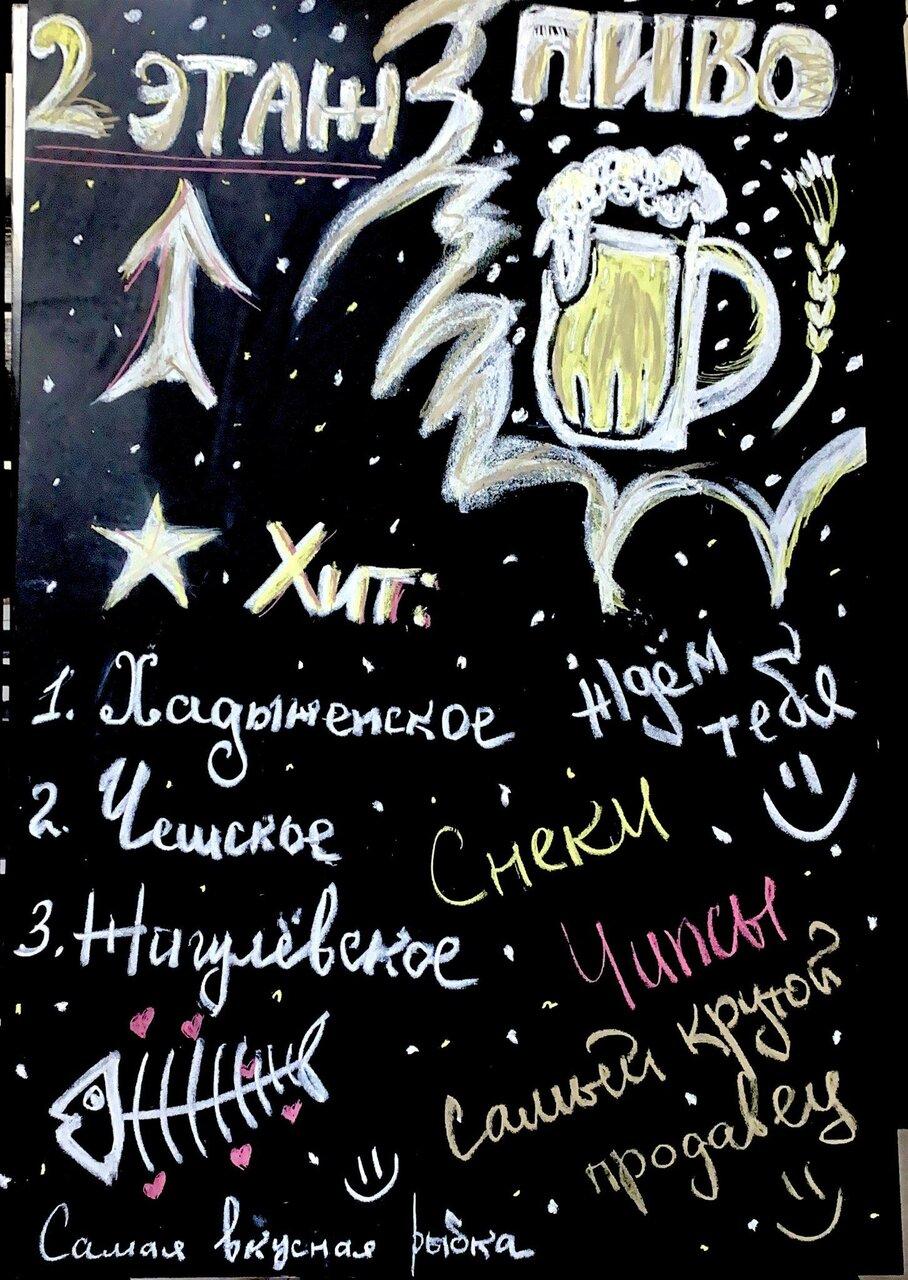 2 ЭТАЖ
ПИВО
Хит:
1. Хадыженское
2. Чешское
3. Жигулёвское
Ждём
тебя
Снеки
Чипсы
Самый крутой
продавец
Самая вкусная рыбка